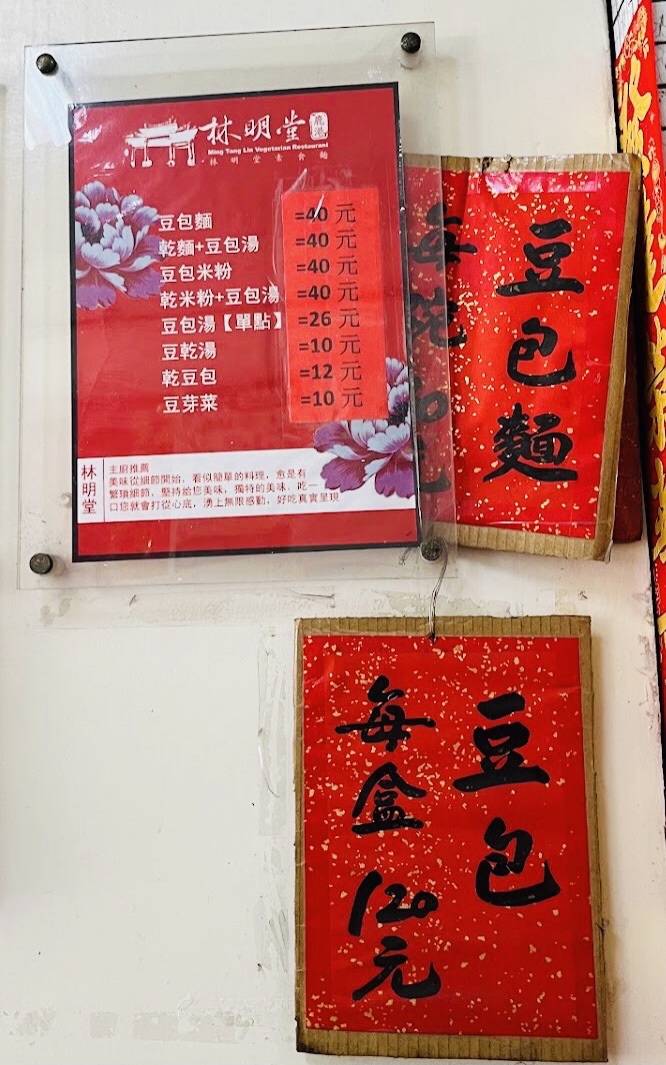 林明堂 鹿港
Ming Tang Lin Vegetarian Restaurant
林明堂素食麵
豆包麵 =40 元
乾麵+豆包湯 =40 元
豆包米粉 =40 元
乾米粉+豆包湯 =40 元
豆包湯【單點】 =26 元
豆乾湯 =10 元
乾豆包 =12 元
豆芽菜 =10 元
林明堂
主廚推薦
美味從細節開始，看似簡單的料理，愈是有
繁瑣細節，堅持給您美味，獨特的美味，吃一
口您就會打從心底，湧上無限感動，好吃真實呈現
豆包麵
每碗40元
豆包
每盒120元